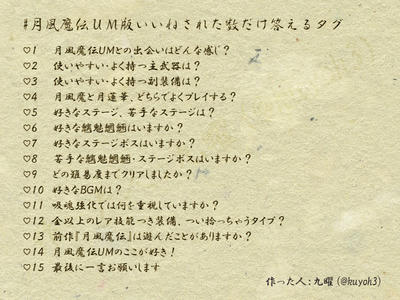 #月風魔伝UM版いいねされた数だけ答えるタグ
♡1 月風魔伝UMとの出会いはどんな感じ?
♡2 使いやすい・よく持つ主武器は?
♡3 使いやすい・よく持つ副装備は?
♡4 月風魔と月蓮華、どちらでよくプレイする?
♡5 好きなステージ、苦手なステージは?
♡6 好きな魑魅魍魎はいますか?
♡7 好きなステージボスはいますか?
♡8 苦手な魑魅魍魎・ステージボスはいますか?
♡9 どの難易度までクリアしましたか?
♡10 好きなBGMは?
♡11 吸魂強化では何を重視していますか?
♡12 金以上のレア技能つき装備、つい拾っちゃうタイプ?
♡13 前作『月風魔伝』は遊んだことがありますか?
♡14 月風魔伝UMのここが好き!
♡15 最後に一言お願いします
作った人:九曜(@kuyoh3)